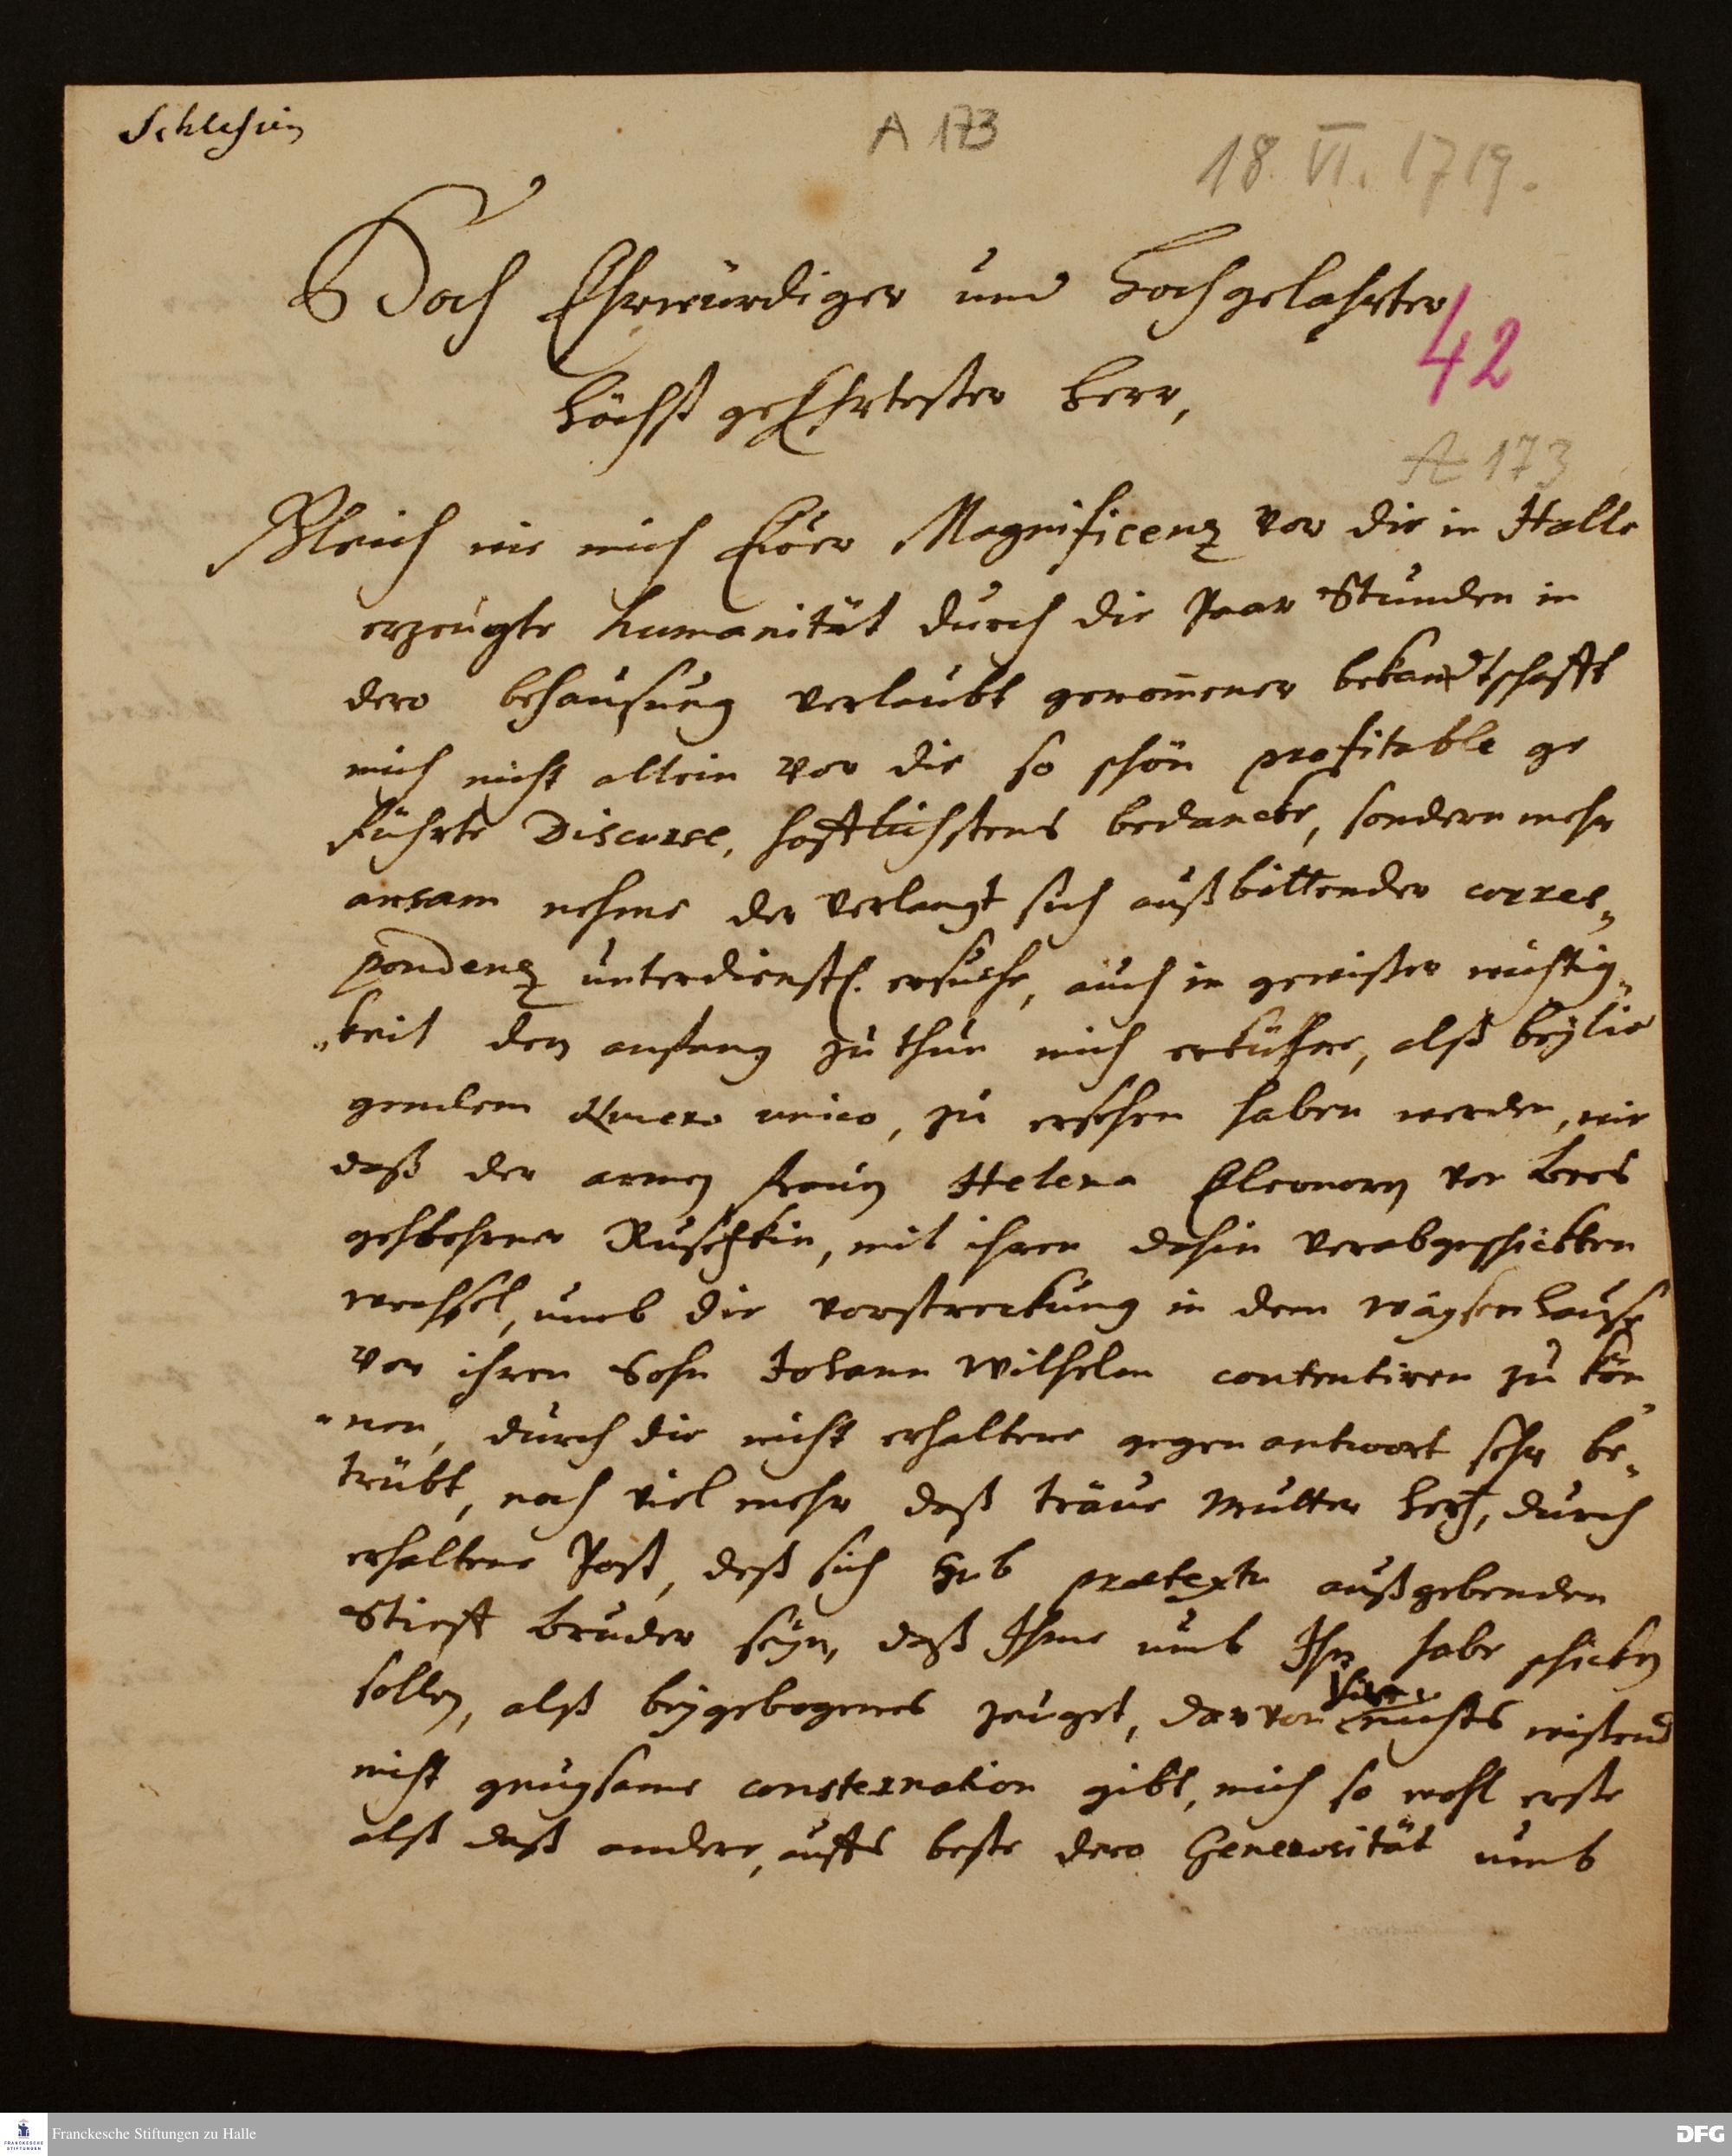 Schlesien
A 173
18. VI. 1719.
Hoch Ehrwürdiger und Hochgelahrter
42
Höchst geEhrtester Herr,
A 173
Gleich wie mich Euer Magnificenz vor die in Halle
erzeugte humanität durch die Paar Stunden in
dero behausung verlaubt genom̄ener bekandtschafft
mich nicht allein vor die so schön profitable ge
führte Discurse, höfftlichstens bedancke, sondern mehr
ansam nehme der verlangt sich außbittender corres„
pondenz unterdienstl. ersuche, auch in gewißer wichtig„
„keit den anfang zu thun mich erkühne, alß beylie
gendem Numero unico, zu ersehen haben werden, wie
daß der armen frauen Helena Eleonora von Bees
gebohrner Ruschkin, mit ihren dahin verabgeschickten
wechssel, umb die vorstreckung in dem waysenhause
vor ihren Sohn Johann Wilhelm contentiren zu kön„
„nen, durch die nicht erhaltene gegen antwort sehr be„
trübt, noch viel mehr daß träue Mutter Hertz, durch
erhaltene Post, deß sich sub praetextu außgebenden
Stieff Bruder seyn, daß Ihme umb Ihn habe schicken
sollen, alß beygebogenes zeuget, dar von nichts wißend
nicht gnugsame consternation gibt, mich so wohl erste
alß daß andere, auffs beste dero Generosität umb
Franckesche Stiftungen zu Halle
DFG